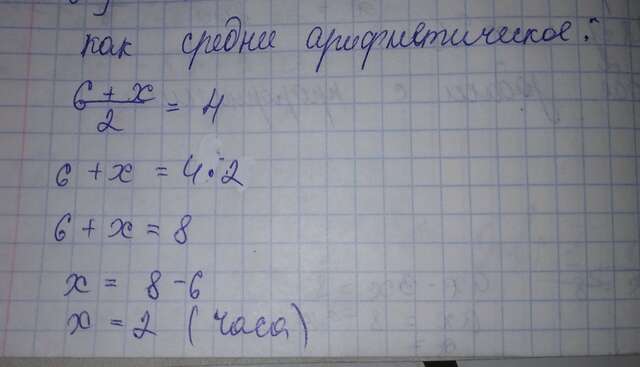 как средне арифметическое:
6 + x / 2 = 4
6 + x = 4 · 2
6 + x = 8
x = 8 - 6
x = 2 (часа)